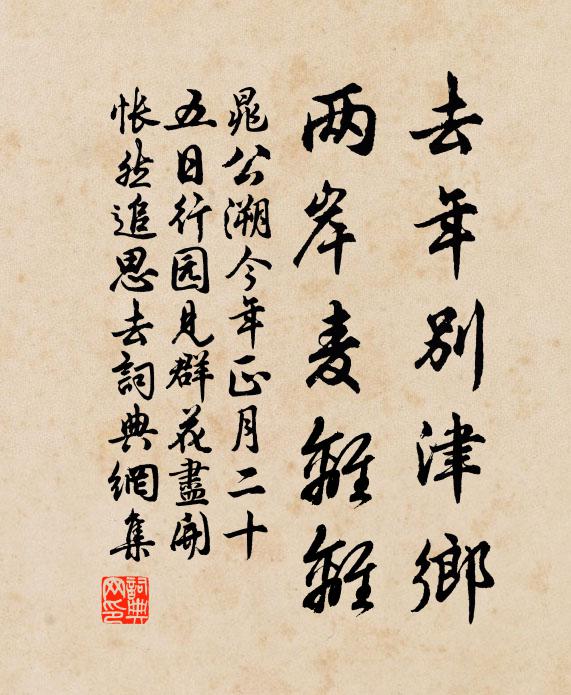 去年别津鄉
两岸麦離離
晁公溯今年正月二十
五日行园見群花盡開
悵然追思去詞典網集
詞典网印